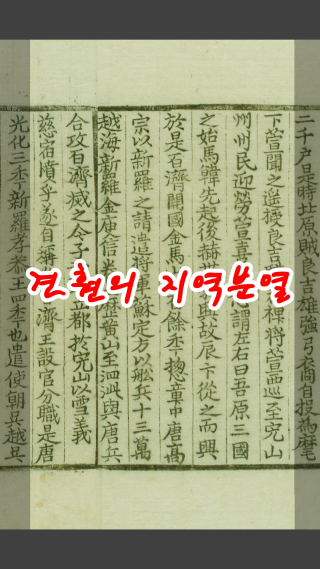 견훤의 지역분열
二千戶是時北原賊良吉雄强弓裔自投爲麾
下萱聞之遙授良吉 裨將萱西巡至完山
州州民迎勞萱喜 謂左右曰吾原三國
之始馬韓先起後赫 故辰卞從之而興
於是百濟開國金馬 餘年摠章中唐高
宗以新羅之請遣將軍蘇定方以舡兵十三萬
越海新羅金庾信 歷黃山至泗沘與唐兵
合攻百濟滅之今予 都於完山以雪義
慈宿憤乎遂自稱 濟王設官分職是唐
光化三年新羅孝恭王四年也遣使朝吳越吳